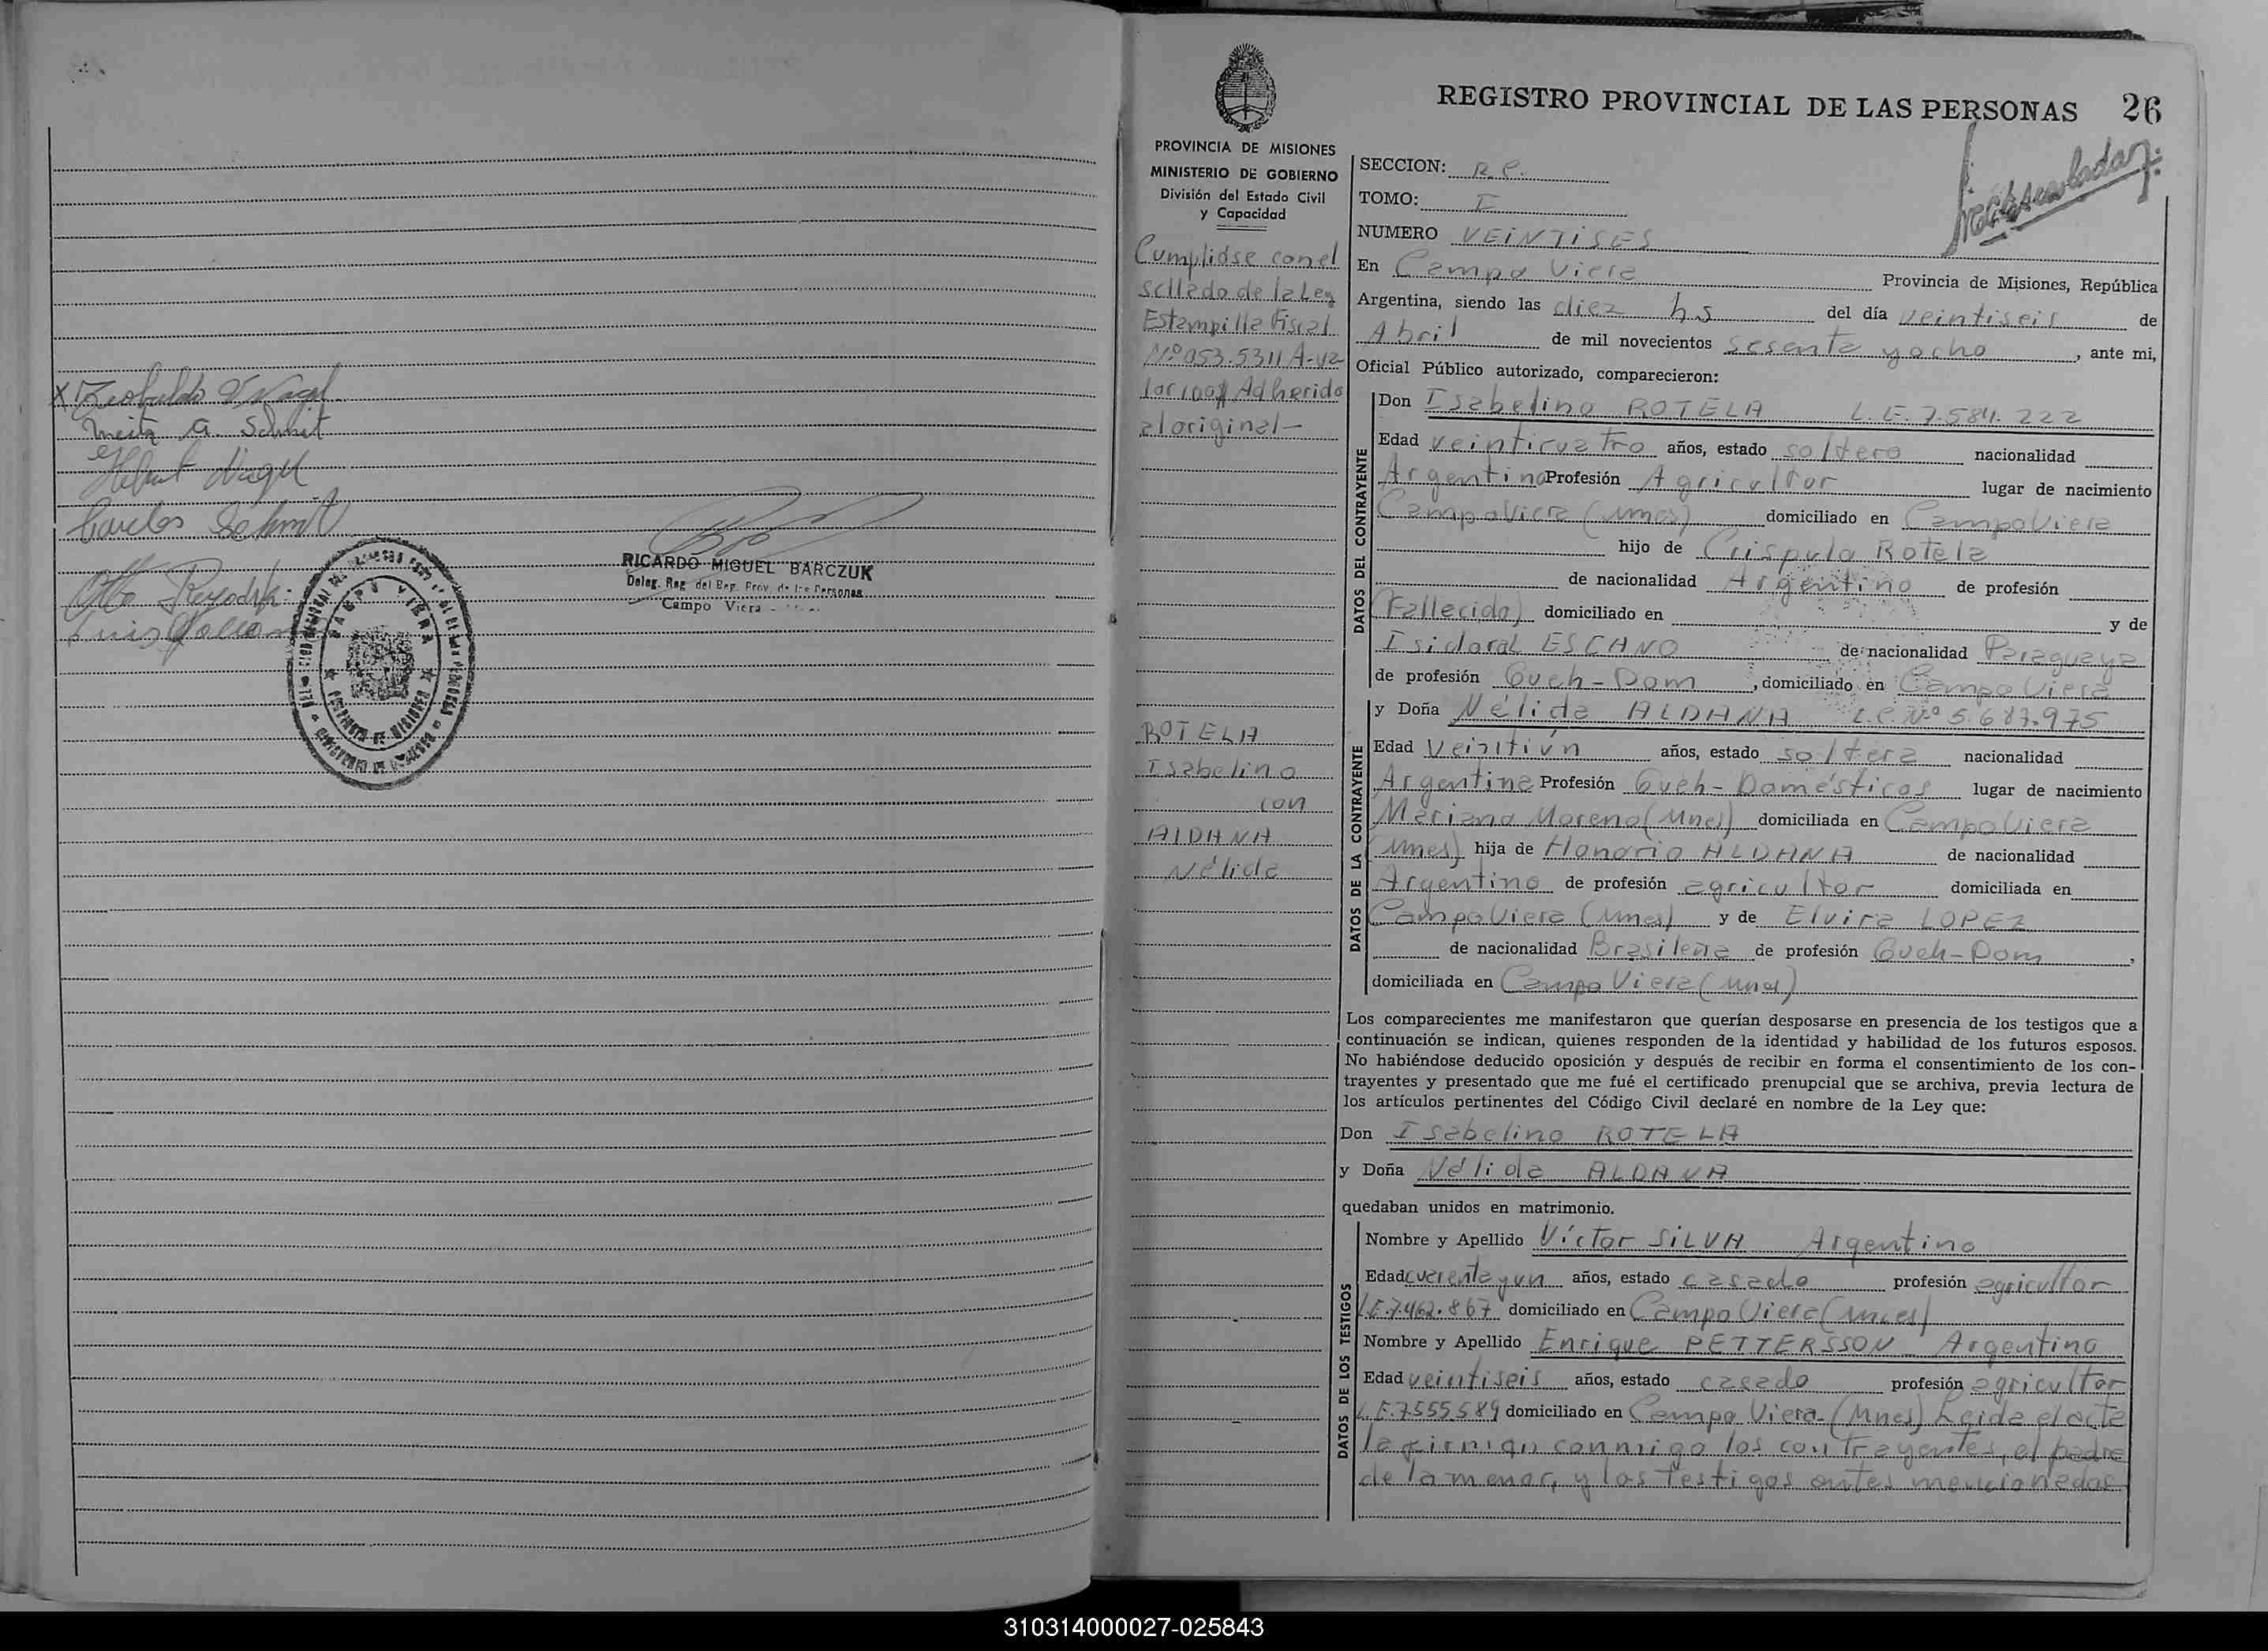 Teobaldo O Nagel
Neita A. Schmit
Helmut Nagel
Carlos Schmit
Otto
Luis
RICARDO MIGUEL BARCZUK
Deleg. Reg. del Reg. Prov. de las Personas
Campo Viera
CAMPO VIERA
REGISTRO PROVINCIAL DE LAS PERSONAS 26
PROVINCIA DE MISIONES
MINISTERIO DE GOBIERNO
División del Estado Civil
y Capacidad
Cumplidse con el
sellado de la Ley
Estampilla Fiscal
Nº 053.5311 A-va
lor 100$ Adherido
al original—
ROTELA
Isabelino
con
ALDANA
Nélida
SECCION: R.C.
TOMO: I
NUMERO VEINTISES
En Campo Viera Provincia de Misiones, República
Argentina, siendo las diez hs del día veintiseis de
Abril de mil novecientos sesenta y ocho, ante mi,
Oficial Público autorizado, comparecieron:
DATOS DEL CONTRAYENTE
Don Isabelino ROTELA L.E. 7.584.222
Edad veinticuatro años, estado soltero nacionalidad
Argentino Profesión Agricultor lugar de nacimiento
Campo Viera (Mnes) domiciliado en Campo Viera
hijo de Crispulo Rotela
de nacionalidad Argentino de profesión
(Fallecido) domiciliado en y de
Isidora ESCANO de nacionalidad Paraguaya
de profesión Queh-Dom, domiciliado en Campo Viera
DATOS DE LA CONTRAYENTE
y Doña Nélida ALDANA L.C. Nº 5.687.975
Edad Veintiun años, estado soltera nacionalidad
Argentina Profesión Queh-Domésticos lugar de nacimiento
Mariano Moreno (Mnes) domiciliada en Campo Viera
(Mnes) hija de Honorio ALDANA de nacionalidad
Argentino de profesión agricultor domiciliada en
Campo Viera (Mnes) y de Elvira LOPEZ
de nacionalidad Brasileña de profesión Queh-Dom,
domiciliada en Campo Viera (Mnes)
Los comparecientes me manifestaron que querían desposarse en presencia de los testigos que a
continuación se indican, quienes responden de la identidad y habilidad de los futuros esposos.
No habiéndose deducido oposición y después de recibir en forma el consentimiento de los con-
trayentes y presentado que me fué el certificado prenupcial que se archiva, previa lectura de
los artículos pertinentes del Código Civil declaré en nombre de la Ley que:
Don Isabelino ROTELA
y Doña Nélida ALDANA
quedaban unidos en matrimonio.
DATOS DE LOS TESTIGOS
Nombre y Apellido Víctor SILVA Argentino
Edad cuarenta y un años, estado casado profesión agricultor
L.E. 7.462.867 domiciliado en Campo Viera (Mnes)
Nombre y Apellido Enrique PETTERSSON Argentino
Edad veintiseis años, estado casado profesión agricultor
L.E. 7.555.589 domiciliado en Campo Viera (Mnes) Leida el acta
la firman conmigo los contrayentes, el padre
de la menor, y los testigos antes mencionados
310314000027-025843